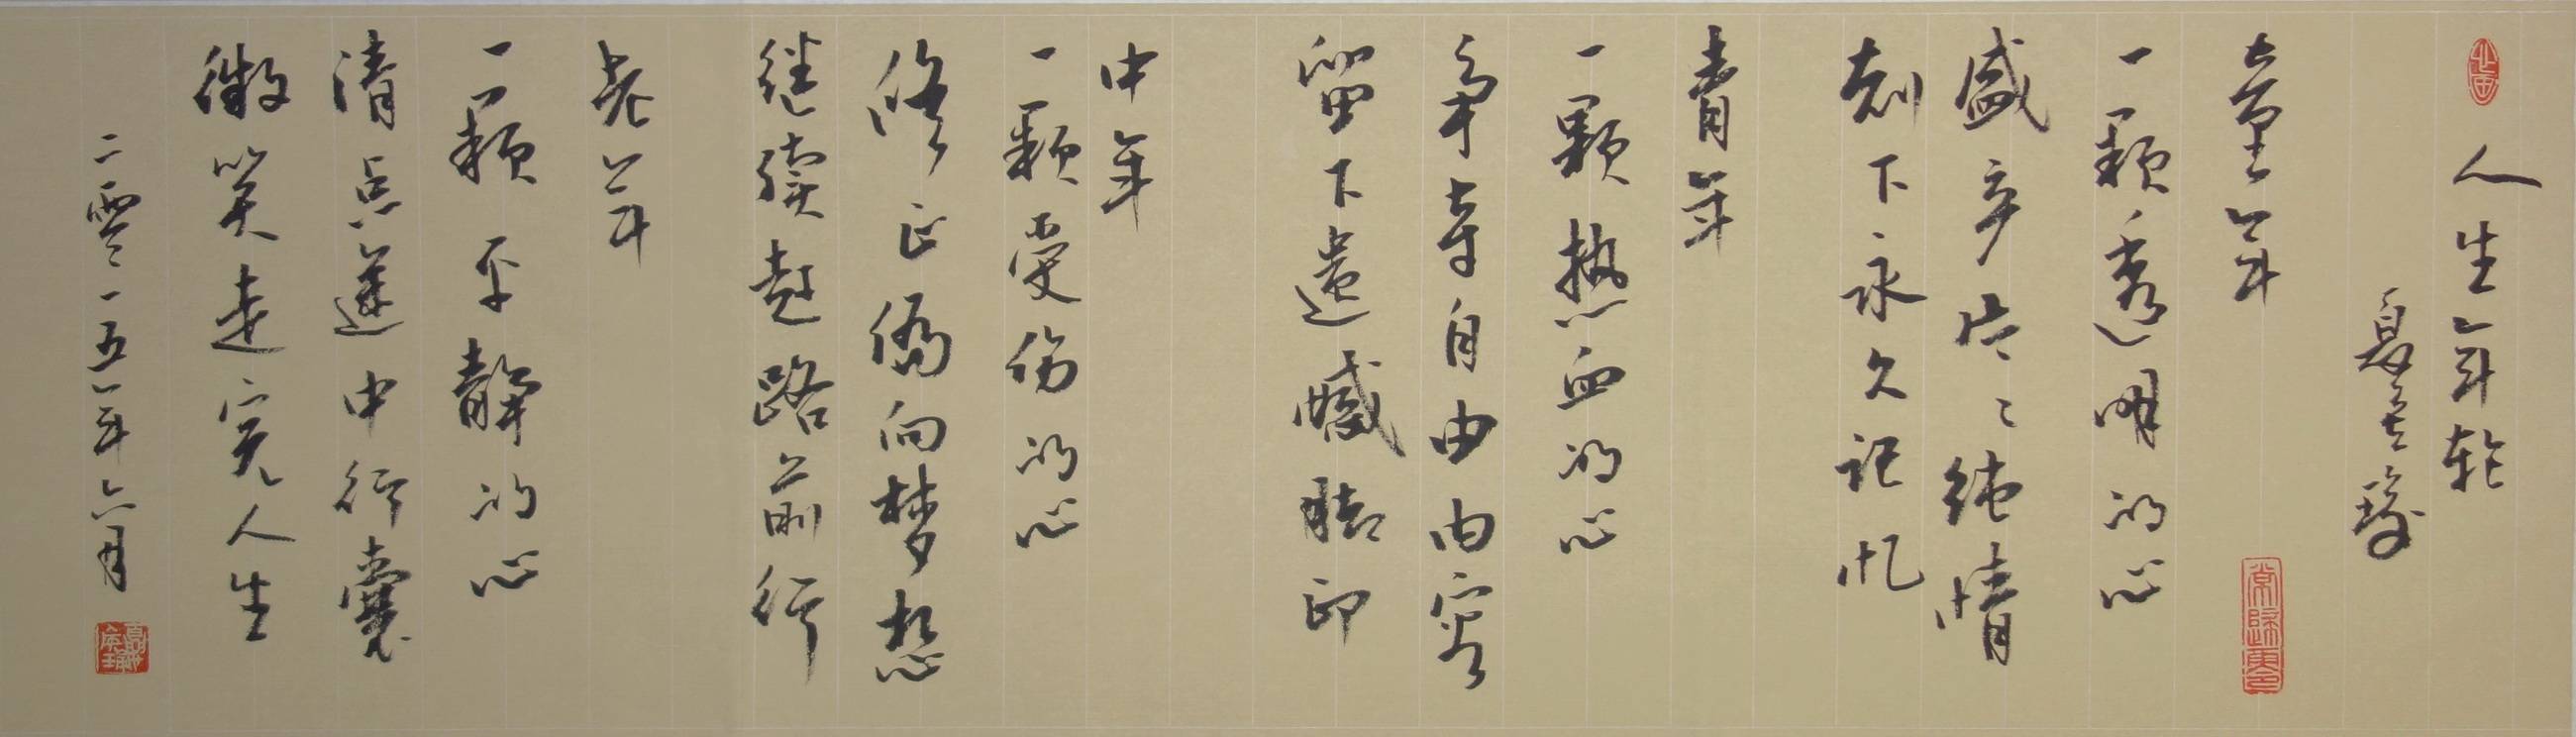 人生年轮
夏奎
童年
一颗透明的心
盛产片片纯情
刻下永久记忆
青年
一颗热血的心
争夺自由内容
留下遗憾脚印
中年
一颗受伤的心
修正偏向梦想
继续赶路前行
老年
一颗平静的心
清点迷中行囊
微笑走完人生
二零一五年六月